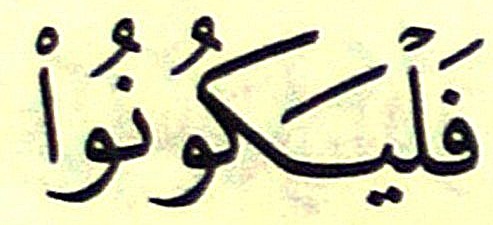 فَلْيَكُونُواْ